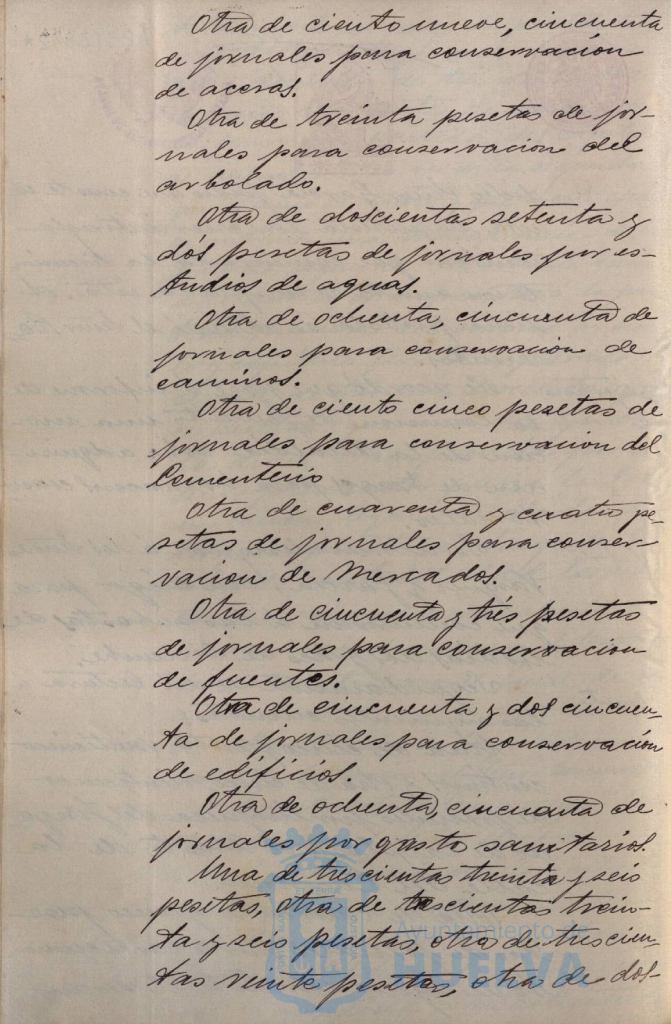 Otra de ciento nueve, cincuenta
de jornales para conservación
de aceras.
Otra de treinta pesetas de jor-
nales para conservacion del
arbolado.
Otra de doscientas setenta y
dós pesetas de jornales por es-
tudios de aguas.
Otra de ochenta, cincuenta de
jornales para conservacion de
caminos.
Otra de ciento cinco pesetas de
jornales para conservacion del
Cementerio
Otra de cuarenta y cuatro pe-
setas de jornales para conser-
vacion de Mercados.
Otra de cincuenta y trés pesetas
de jornales para conservacion
de fuentes.
Otra de cincuenta y dos cincuen-
ta de jornales para conservación
de edificios.
Otra de ochenta, cincuenta de
jornales por gasto sanitarios.
Una de trescientas treinta y seis
pesetas, otra de trescientas trein-
ta y seis pesetas, otra de trescien-
tas veinte pesetas, otra de dos-
Ayuntamiento de
HUELVA